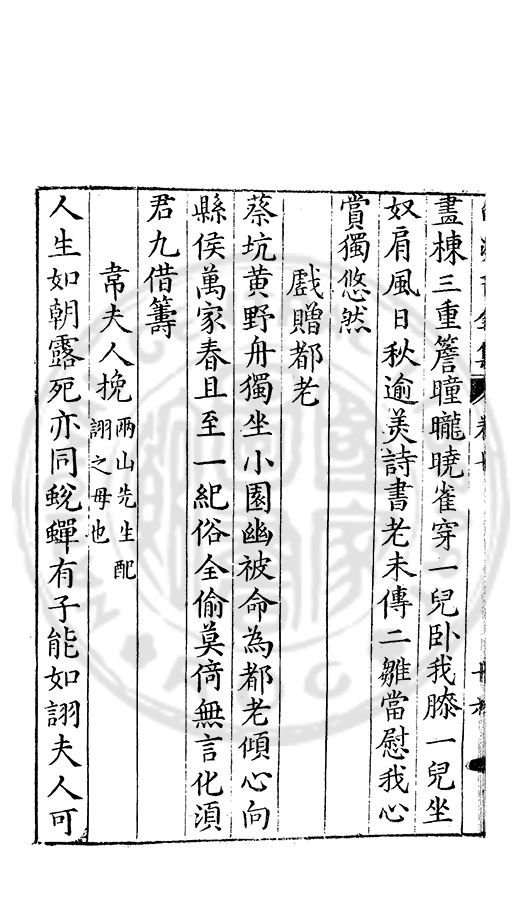 畵棟三重簷曈曨曉雀穿一兒卧我膝一兒坐
奴肩風日秋逾美詩書老未傳二雛當慰我心
賞獨悠然
戲贈都老
蔡坑黄野舟獨坐小園幽被命為都老傾心向
縣侯萬家春且至一紀俗全偷莫倚無言化湏
君九借籌
韋夫人挽
兩山先生配
詡之母也
人生如朝露死亦同蛻蟬有子能如詡夫人可